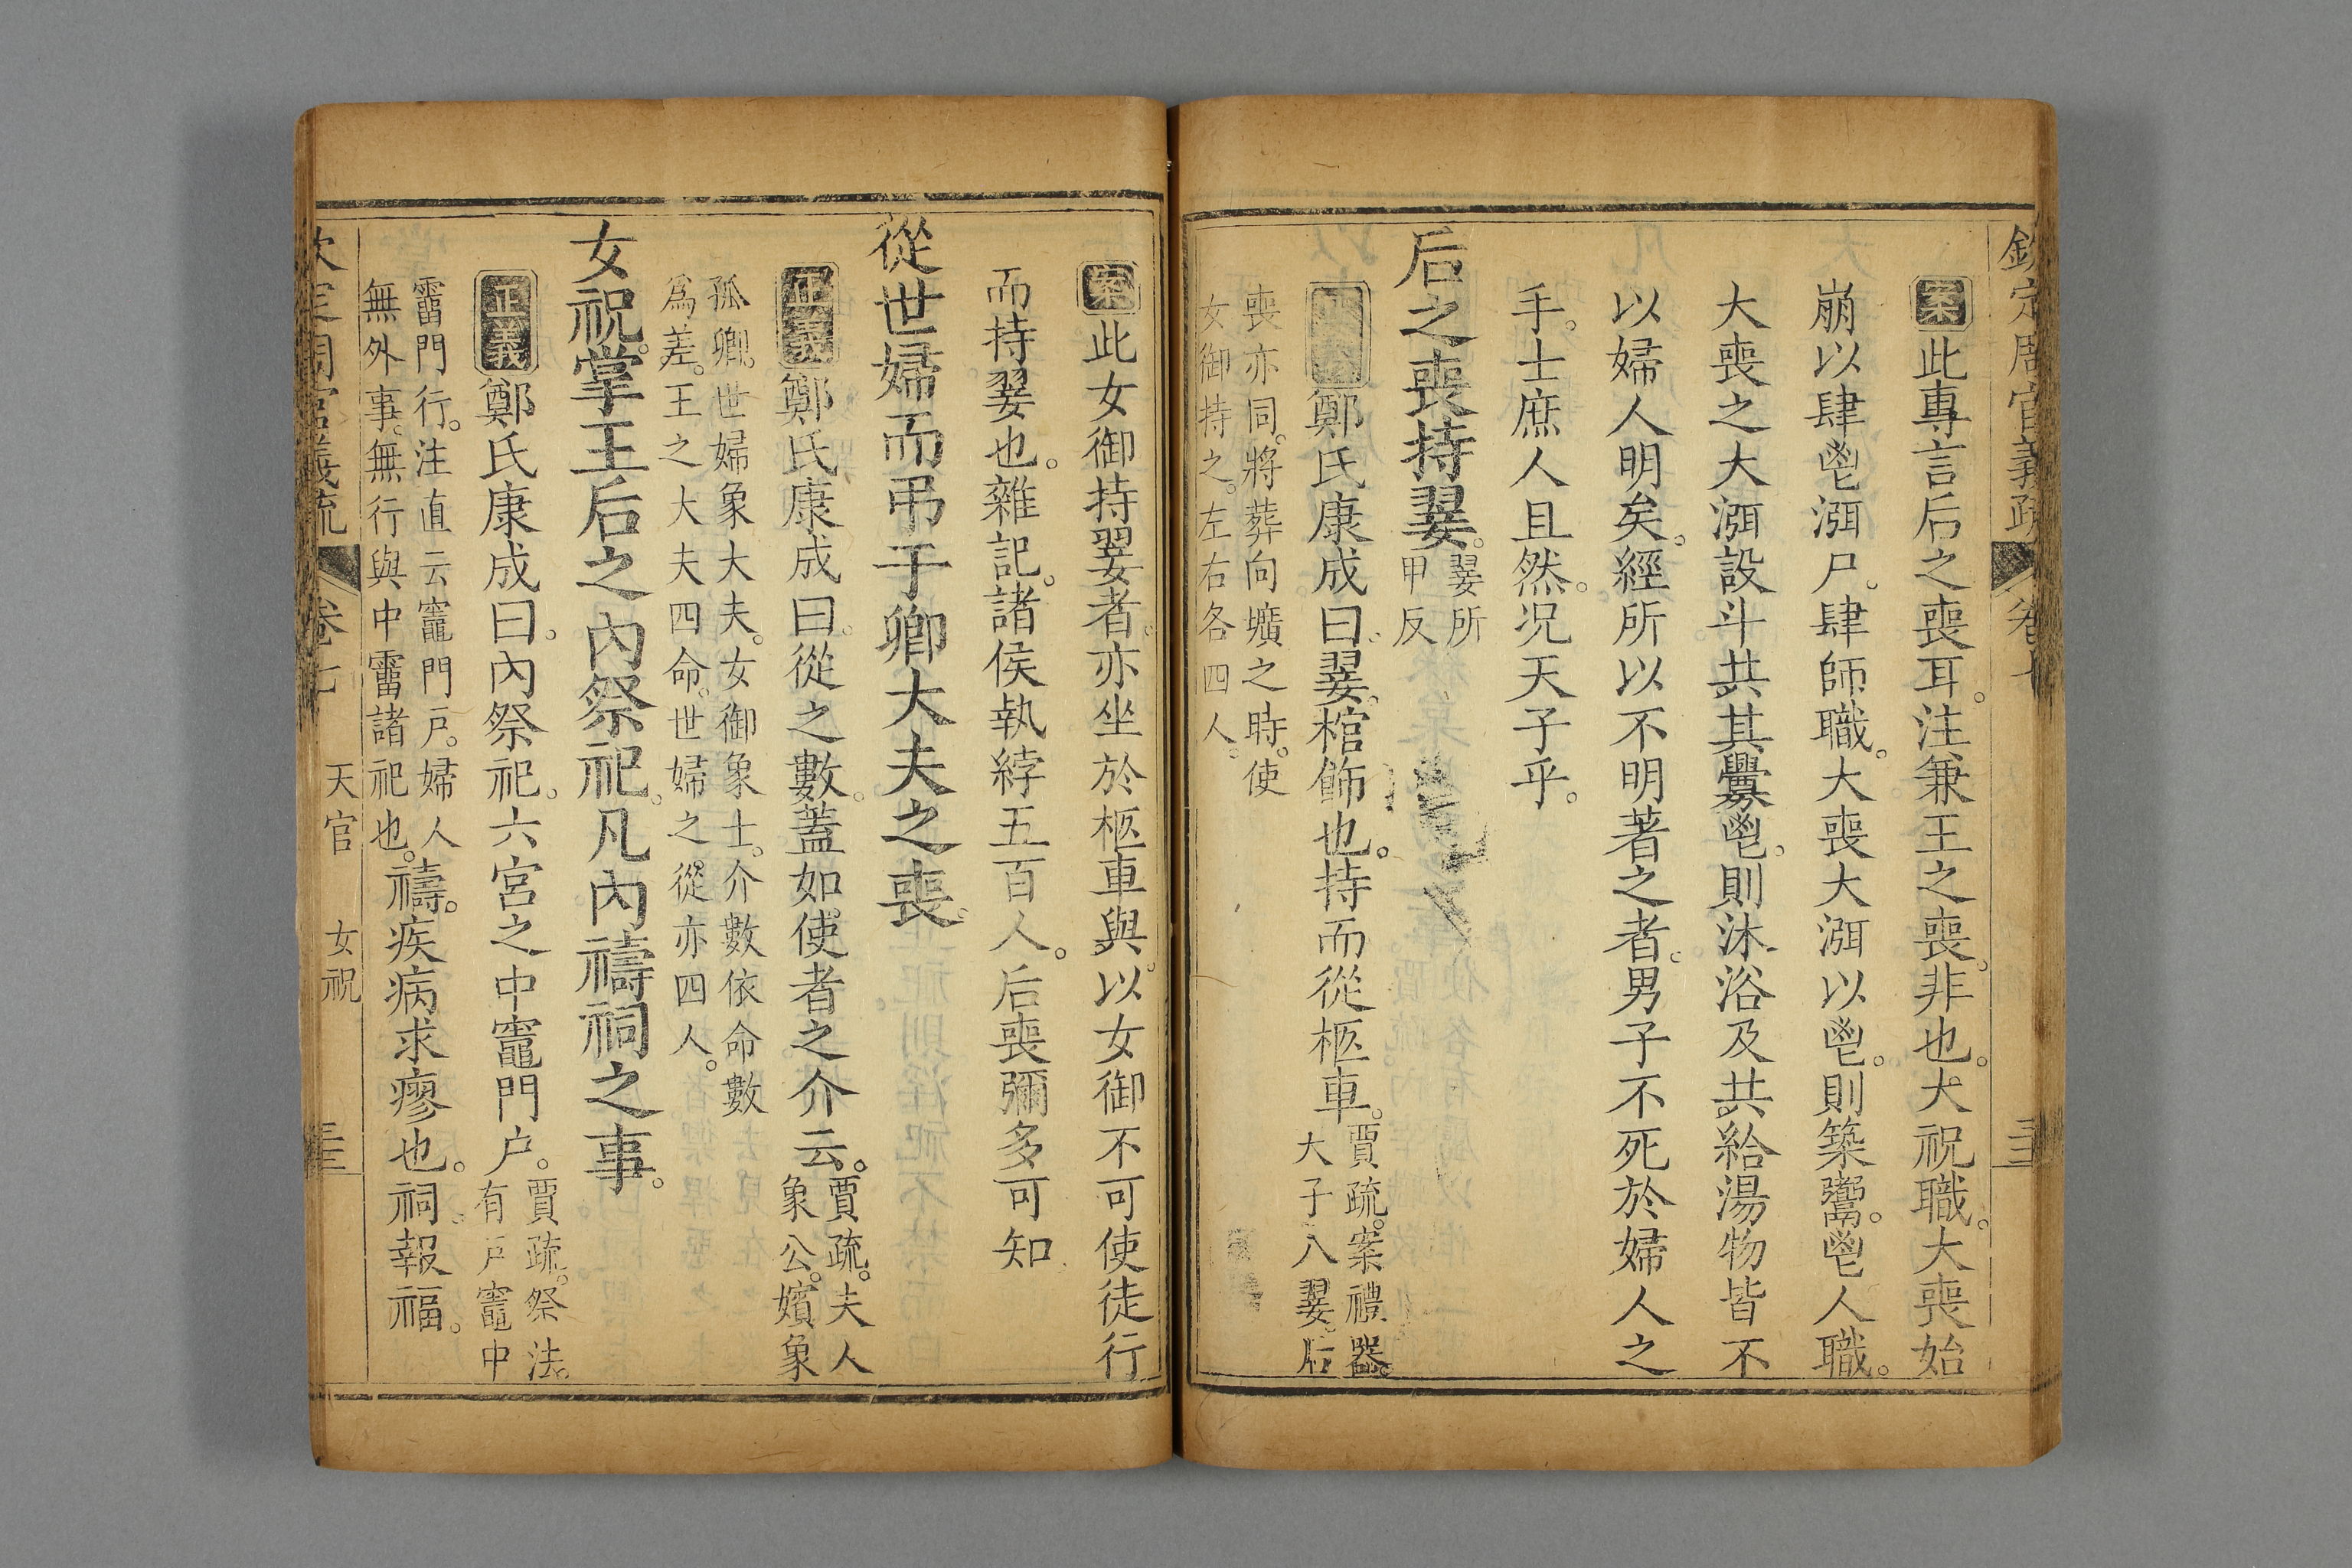 欽定周官義疏 卷七
案此專言后之喪耳。注兼王之喪。非也。大祝職。大喪始
崩以肆鬯渳尸。肆師職。大喪大渳以鬯。則築鬻。鬯人職。
大喪之大渳設斗共其釁鬯。則沐浴及共給湯物皆不
以婦人明矣。經所以不明著之者。男子不死於婦人之
手。士庶人且然。况天子乎。
后之喪持翣。翣所
甲反
正義鄭氏康成曰。翣。棺飾也。持而從柩車。賈疏。案禮器。
大子八翣。后
喪亦同。將葬向壙之時。使
女御持之。左右各四人。
案此女御持翣者。亦坐於柩車與。以女御不可使徒行
而持翣也。雜記。諸侯執綍五百人。后喪彌多可知
從世婦而弔于卿大夫之喪。
正義鄭氏康成曰。從之數。蓋如使者之介云。賈疏。夫人
象公。嬪象
孤卿。世婦象大夫。女御象士。介數依命數
爲差。王之大夫四命。世婦之從亦四人。
女祝。掌王后之內祭祀。凡內禱祠之事。
正義鄭氏康成曰。內祭祀。六宮之中竈門户。賈疏。祭法。
有户竈中
霤門行。注直云竈門户。婦人
無外事。無行與中霤諸祀也。禱。疾病求瘳也。祠。報福。
欽定周官義疏 卷七 天官 女祝